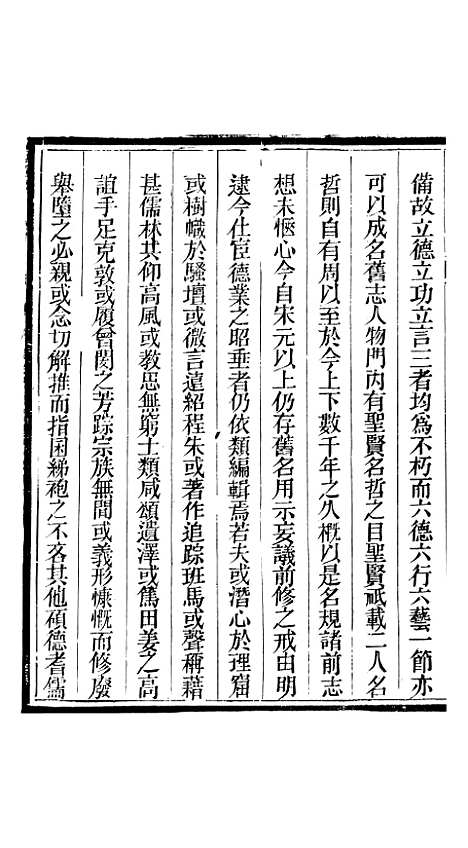 備故立德立功立言三者均爲不朽而六德六行六藝一節亦
可以成名舊志人物門內有聖賢名哲之目聖賢祇載二人名
哲則自有周以至於今上下數千年之久概以是名規諸前志
想未愜心今自宋元以上仍存舊名用示妄議前修之戒由明
逮今仕宦德業之昭垂者仍依類編輯焉若夫或潛心於理窟
或樹幟於騷壇或微言遠紹程朱或著作追踪班馬或聲稱藉
甚儒林共仰高風或教思無窮士類咸頌遺澤或篤田姜之高
誼手足克敦或履曾閔之芳踪宗族無間或義形慷慨而修廢
舉墮之必親或念切解推而指囷綈袍之不吝其他碩德耆儒